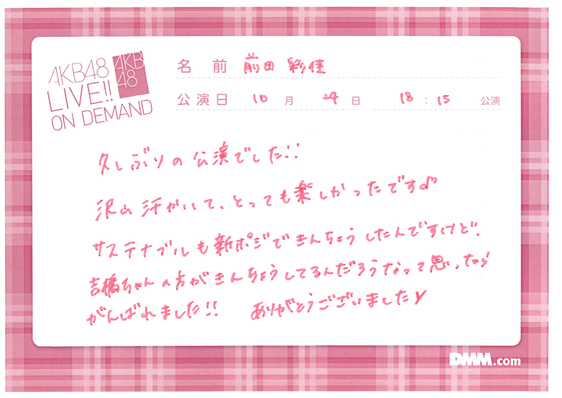 AKB48
LIVE!!
ON DEMAND
AKB
48
名 前 前田 彩佳
公演日 10 月 24 日 18 : 15 公演
久しぶりの公演でした!!
沢山汗かいて、とっても楽しかったです♪
サステナブルも新ポジできんちょうしたんですけど、
吉橋ちゃんの方がきんちょうしてるんだろうなって思ったら
がんばれました!! ありがとうございました♥
DMM.com